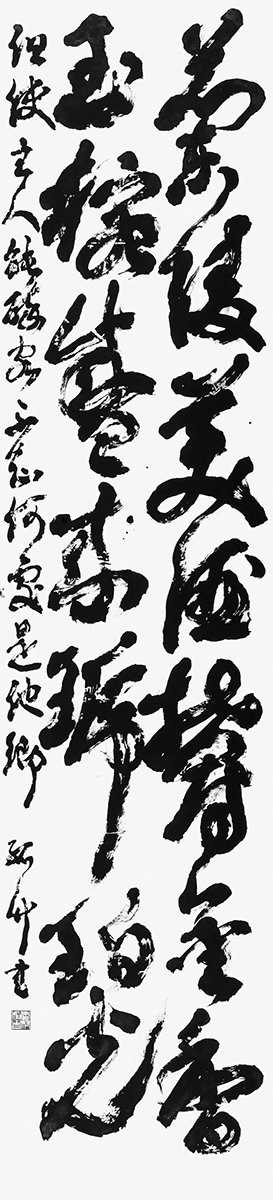 蘭陵美酒鬱金香
玉椀盛來琥珀光
但使主人能醉客不知何處是他鄉 書